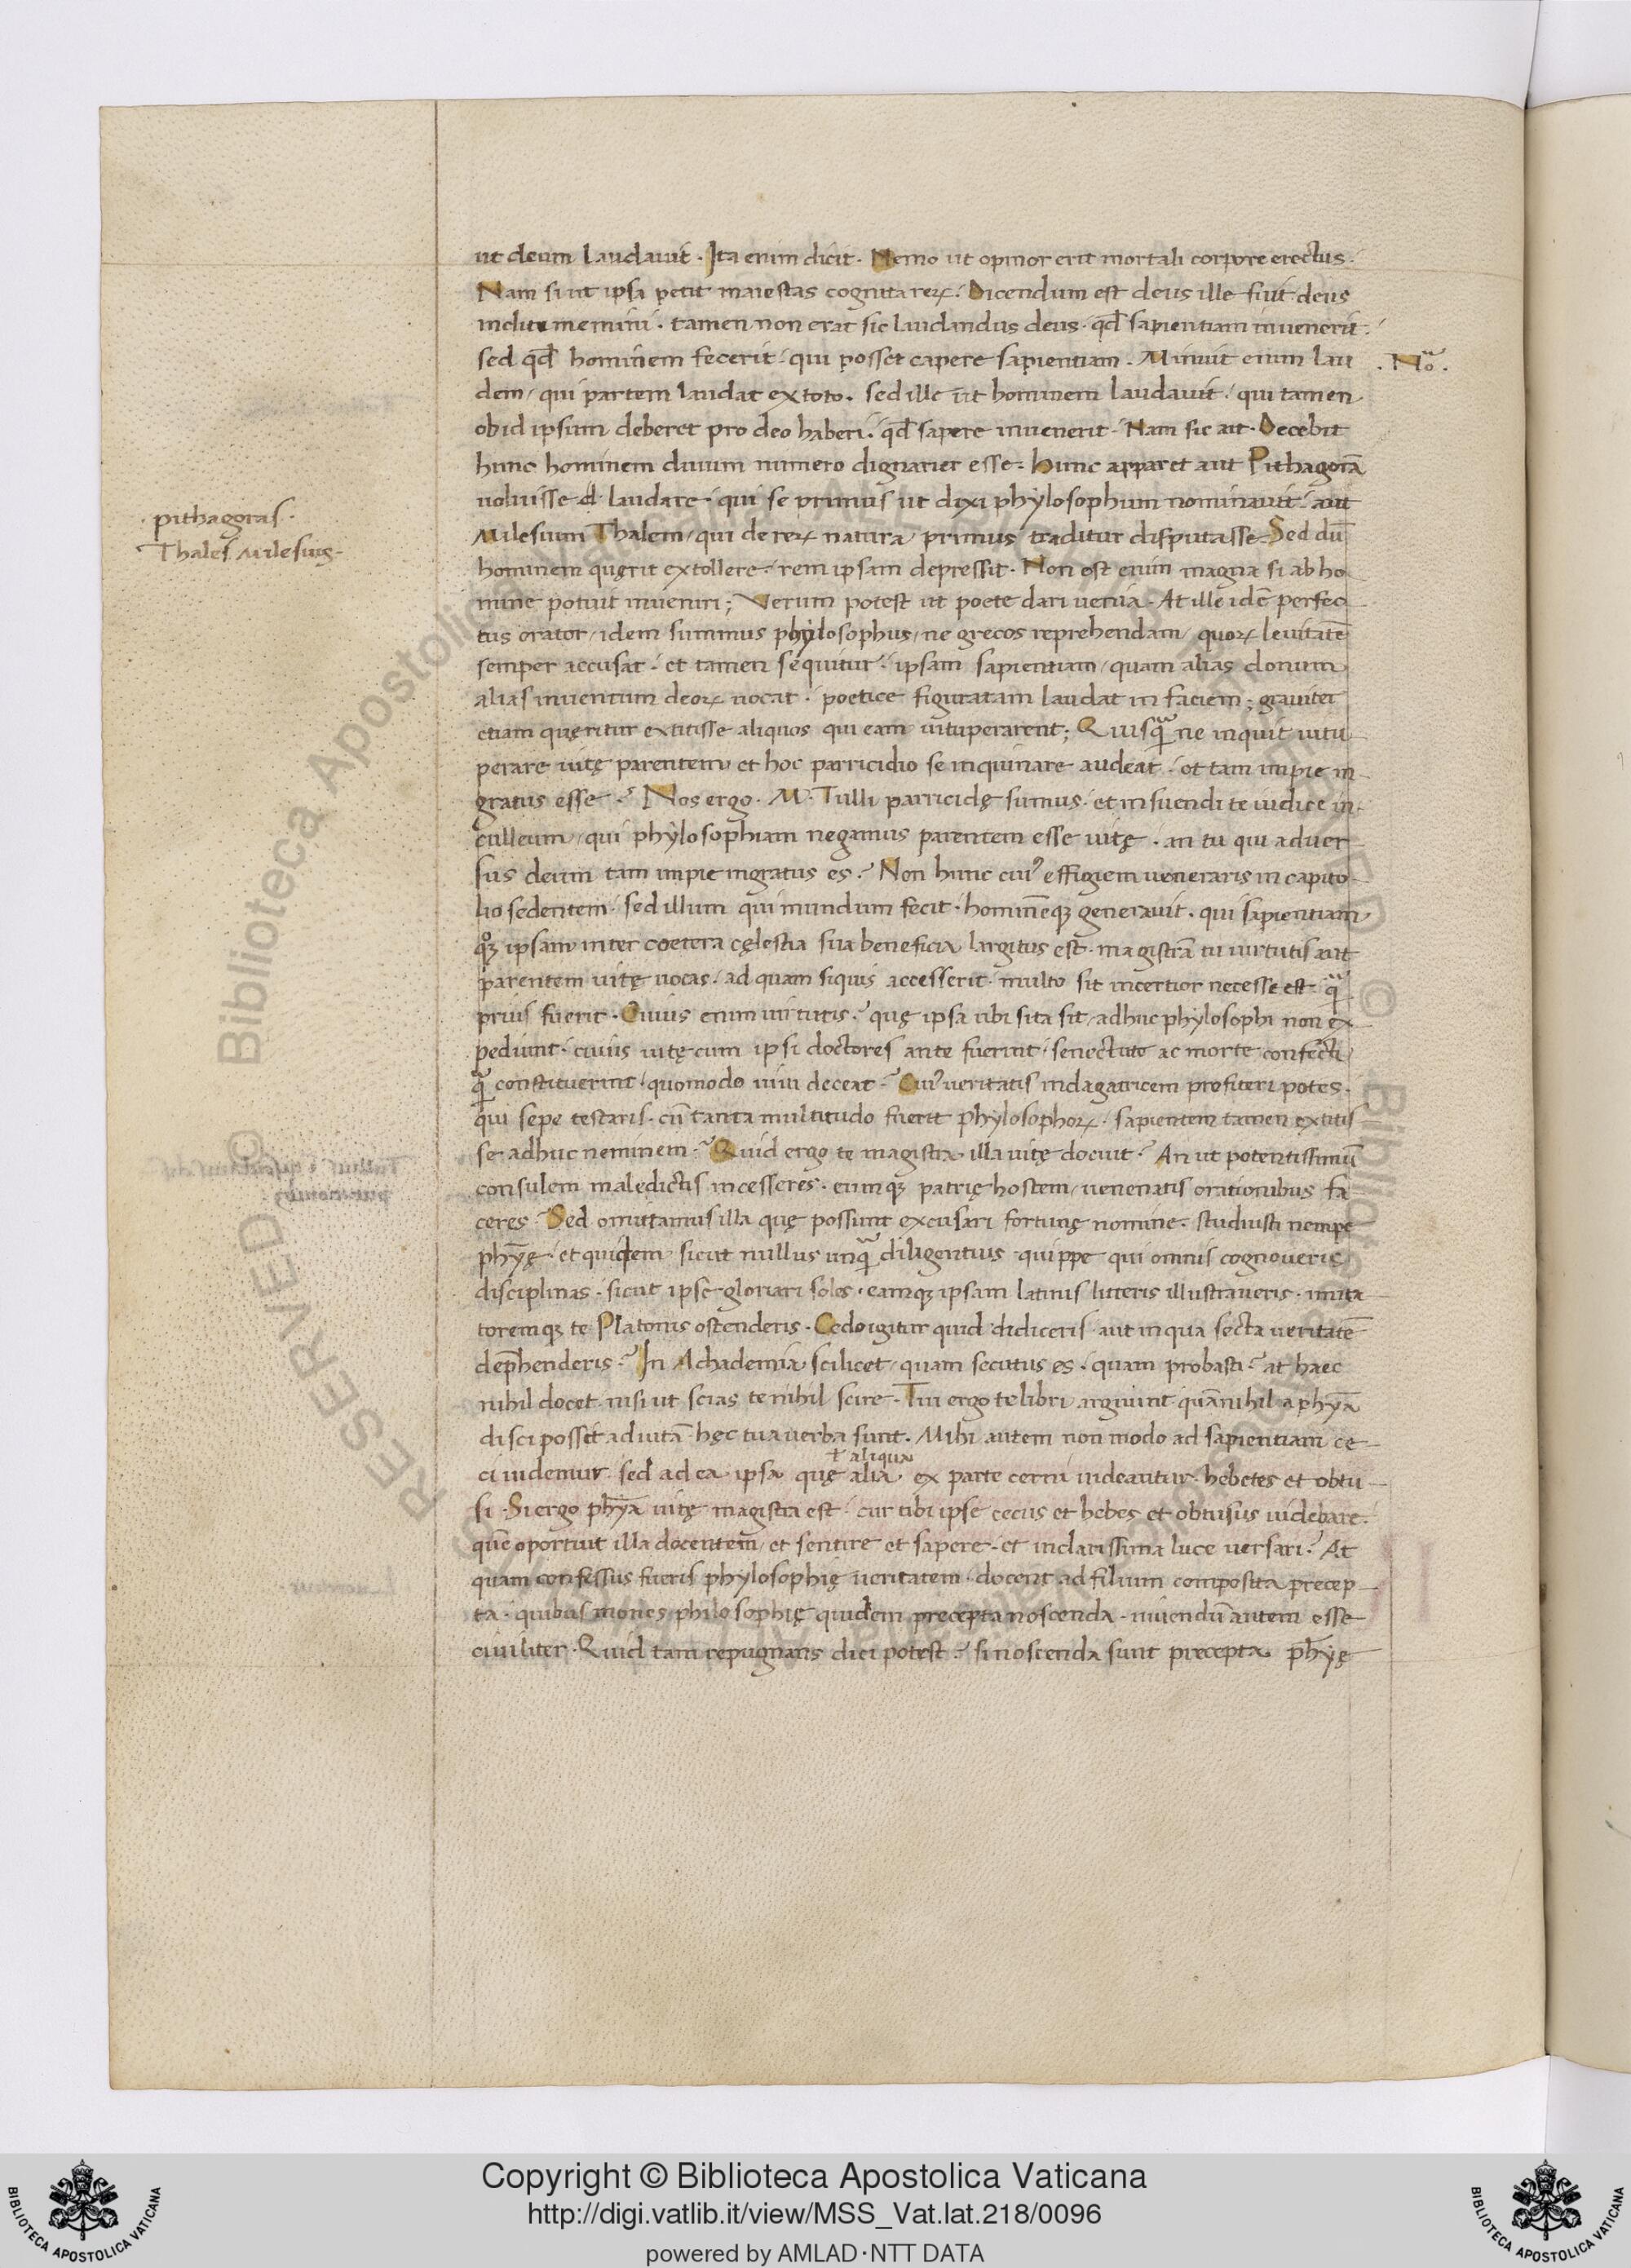 ut deum laudauit. Ita enim dicit. Nemo ut opinor erit mortali corpore erectus.
Nam si ut ipsa petit maiestas cognita reꝝ. Dicendum est deus ille fiut deus
inclite memini. tamen non erat sic laudandus deus. qđ sapientiam inuenerit.
sed qđ hominem fecerit. qui posset capere sapientiam. Minuit enim lau
dem / qui partem laudat ex toto. sed ille ut hominem laudauit / qui tamen
.Nõ.
ob id ipsum deberet pro deo haberi. qđ sapere inuenerit. Nam sic ait. Decebit
hunc hominem diuum numero dignarier esse. Hunc apparet aut Pithagorã
uoluisse d laudare. qui se primus ut dixi phylosophum nominauit. aut
pithagoras.
Thales Milesius.
Milesium Thalem / qui de reꝝ natura primus traditur disputasse. Sed dũ
hominem quęrit extollere. rem ipsam depressit. Non est enim magna si ab ho
mine potuit inueniri; Verum potest ut poete dari uenia. At ille idẽ perfec
tus orator / idem summus phylosophus / ne grecos reprehendam / quoꝝ leuitatẽ
semper accusat. et tamen sequitur. ipsam sapientiam / quam alias donum
alias inuentum deoꝝ uocat. poetice figuratam laudat in faciem; grauiter
etiam quęritur extitisse aliquos qui eam uituperarent; Quisq̃ ne inquit uitu
perare uitę parentem et hoc parricidio se inquinare audeat. et tam impie in
gratus esse? Nos ergo. M. Tulli parricidę sumus. et insuendi te iudice in
culleum / qui phylosophiam negamus parentem esse uitę. an tu qui aduer
sus deum tam impie ingratus es? Non hunc cuiꝰ effigiem ueneraris in capito
lio sedentem. sed illum qui mundum fecit. hominẽqꝫ generauit. qui sapientiam
qͦꝫ ipsam inter coetera cęlestia sua beneficia largitus est. magistrã tu uirtutis aut
parentem uitę uocas / ad quam siquis accesserit. multo sit incertior necesse est q̃
prius fuerit. Cuius enim uirtutis? quę ipsa ubi sita sit / adhuc phylosophi non ex
pediunt. cuius uitę cum ipsi doctores ante fuerint. senectute ac morte confecti
q̃ constituerint / quomodo uiui deceat? Cuiꝰ ueritatis indagatricem profiteri potes.
qui sepe testaris. cũ tanta multitudo fuerit phylosophoꝝ. sapientem tamen extitis
se adhuc neminem? Quid ergo te magistra illa uitę docuit? An ut potentissimũ
consulem maledictis incesseres. eumqꝫ patrię hostem / uenenatis orationibus fa
ceres? Sed omittamus illa quę possunt excusari fortunę nomine. studuisti nempe
phỹę. et quidem sicut nullus unq̃ diligentius. quippe qui omnis cognoueris
disciplinas. sicut ipse gloriari soles. eamqꝫ ipsam latinis litteris illustraueris. imita
toremqꝫ te Platonis ostenderis. Cedo igitur quid didiceris aut in qua secta ueritatẽ
dep̃henderis? In Achademia scilicet / quam secutus es. quam probasti? at haec
nihil docet. nisi ut scias te nihil scire. Tui ergo te libri arguunt quãnihil a phỹa
disci posset ad uitã hęc tua uerba sunt. Mihi autem non modo ad sapientiam ce
ł aliqua
ci uidemur. sed ad ea ipsa quę alia ex parte cerni uideantur. hebetes et obtu
si. Si ergo phỹa uitę magistra est. cur tibi ipse cecus et hebes et obtusus uidebare.
quẽ oportuit illa docentem / et sentire et sapere. et inclarissima luce uersari? At
quam confessus fueris phylosophię ueritatem. docent ad filium composita precep
ta. quibus mones philosophię quidem precepta noscenda. uiuendũ autem esse
ciuiliter. Quid tam repugnans dici potest? si noscenda sunt precepta phỹę
Copyright © Biblioteca Apostolica Vaticana
http://digi.vatlib.it/view/MSS_Vat.lat.218/0096
powered by AMLAD·NTT DATA
BIBLIOTECA APOSTOLICA VATICANA
BIBLIOTECA APOSTOLICA VATICANA